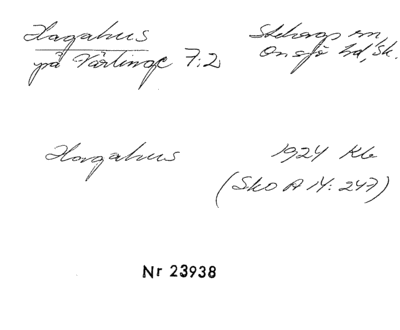 Hagahus
på Vårlinge 7:2
Stehags sn,
Onsjö hd, Sk.
Hagahus
1924 Kb
(Sko A 14: 247)
Nr 23938